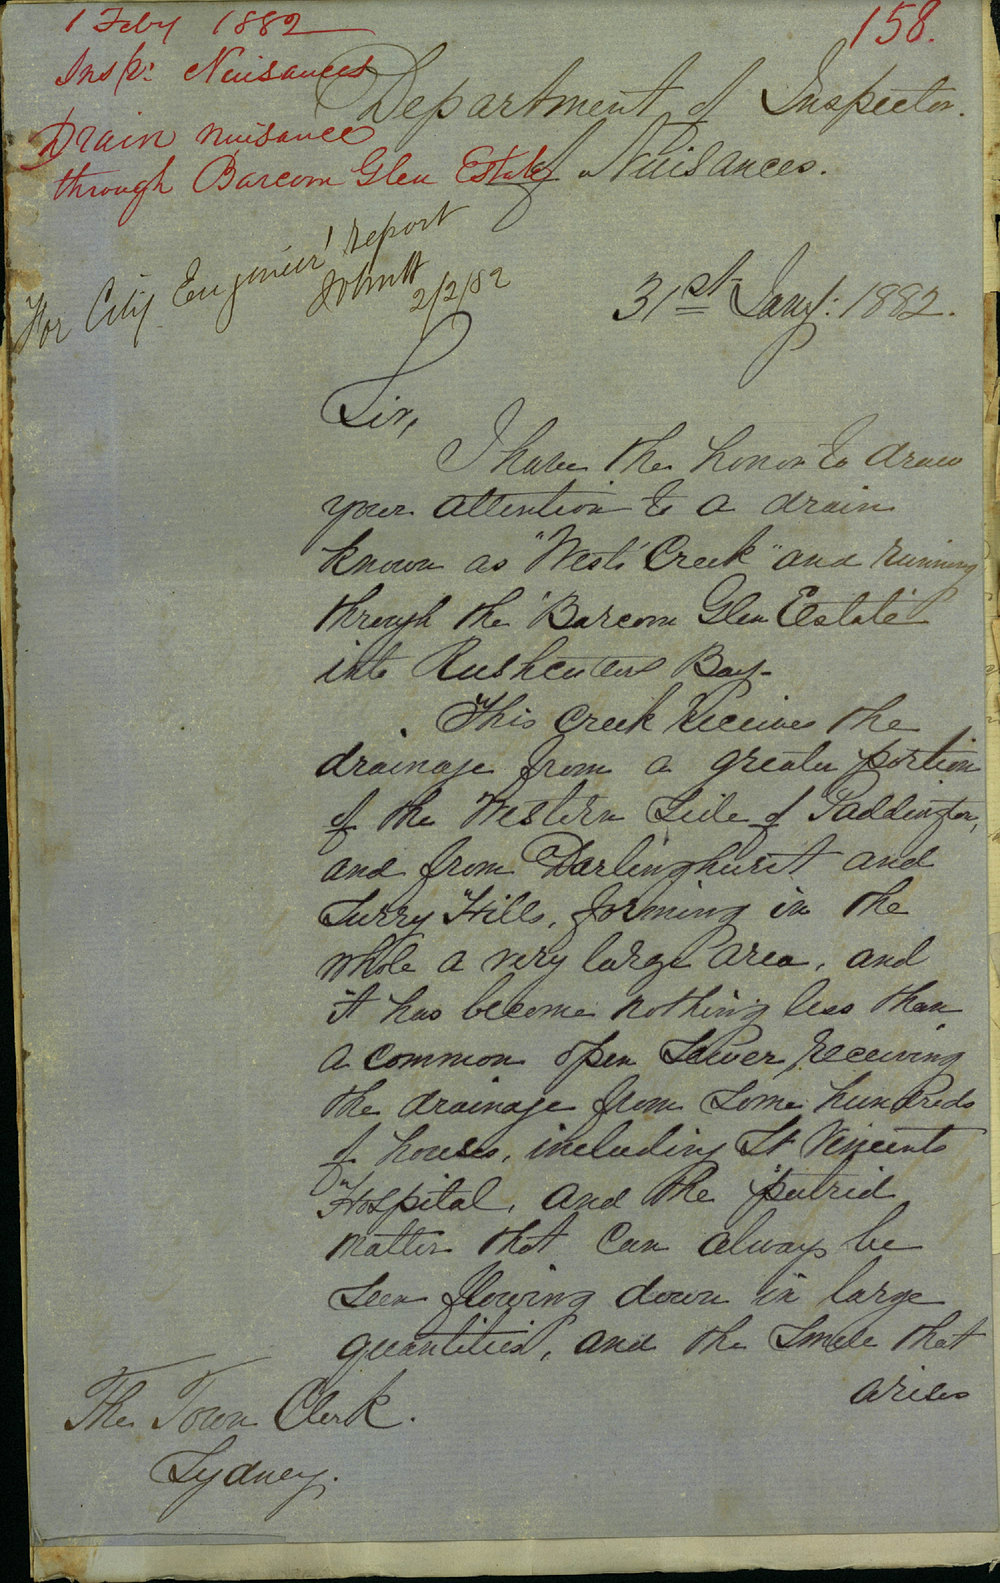 1 Feby 1882
158.
Insp: Nuisances
Drain nuisance
through Barcom Glen Estate
For City Engineer's report
2/2/82
Department of Inspector
of Nuisances.
31st Jany: 1882.
Sir,
I have the honor to draw
your attention to a drain
known as "West's Creek" and running
through the "Barcom Glen Estate"
into Rushcutters Bay.
This creek receives the
drainage from a greater portion
of the Western side of Paddington,
and from Darlinghurst and
Surry Hills, forming in the
whole a very large area, and
it has become nothing less than
a common open sewer, receiving
the drainage from some hundreds
of houses, including St Vincents
Hospital, and the putrid
matter that can always be
seen flowing down in large
quantities, and the smell that
arises
The Town Clerk.
Sydney.